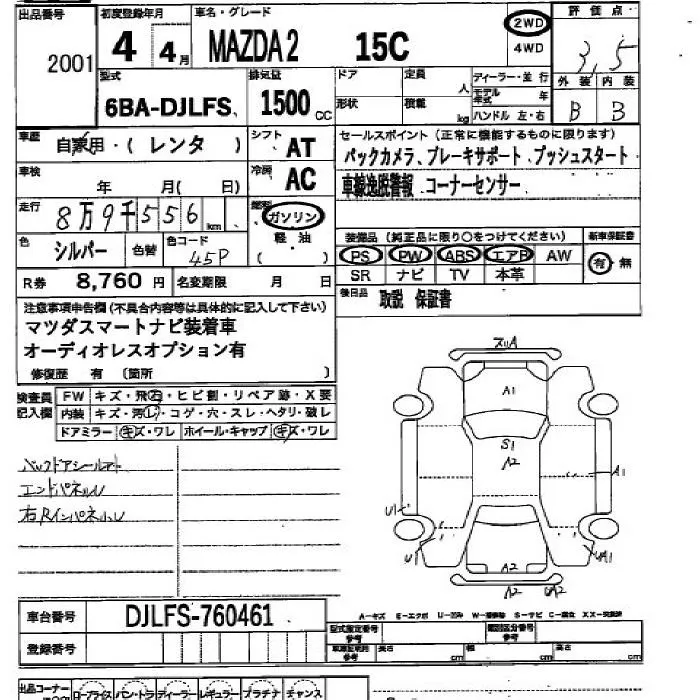 出品番号 初度登録年月 車名・グレード 2WD 評価点
2001 4 年 4月 MAZDA2 15C 4WD 3,5
型式 排気量 ドア 定員 人 ディーラー・並行 外装 内装
6BA-DJLFS 1500 CC 形状 積載 kg モデル年式 年 B 3
ハンドル 左・右
車歴 自家用・(レンタ) シフト AT セールスポイント (正常に機能するものに限ります)
バックカメラ、ブレーキサポート、プッシュスタート
車検 年 月( 日) 冷房 AC 車線逸脱警報、コーナーセンサー
走行 8万9千556 km 燃料 ガソリン
軽・油
( )
色 シルバー 色替 色コード 45P
装備品 (純正品に限り○をつけてください) 新車保証書
PS PW ABS エアB AW 有・無
SR ナビ TV 本革
R券 8,760 円 名変期限 月 日
後日品 取説 保証書
注意事項申告欄 (不具合内容等は具体的に記入して下さい)
マツダスマートナビ装着車
オーディオレスオプション有
修復歴 有 (箇所 )
検査員記入欄 FW キズ・飛石・ヒビ割・リペア跡・X要
内装 キズ・汚レ・コゲ・穴・スレ・ヘタリ・破レ
ドアミラー キズ・ワレ ホイール・キャップ キズ・ワレ
バックドアシールアト
エンドパネルU
右RインパネルU
ズリA
A1
S1
A2
A1
U1
U1
UA1
A2
A2
車台番号 DJLFS-760461
登録番号
型式指定番号 参考 類別区分番号 参考
長さ cm 幅 cm 高さ cm
出品コーナー